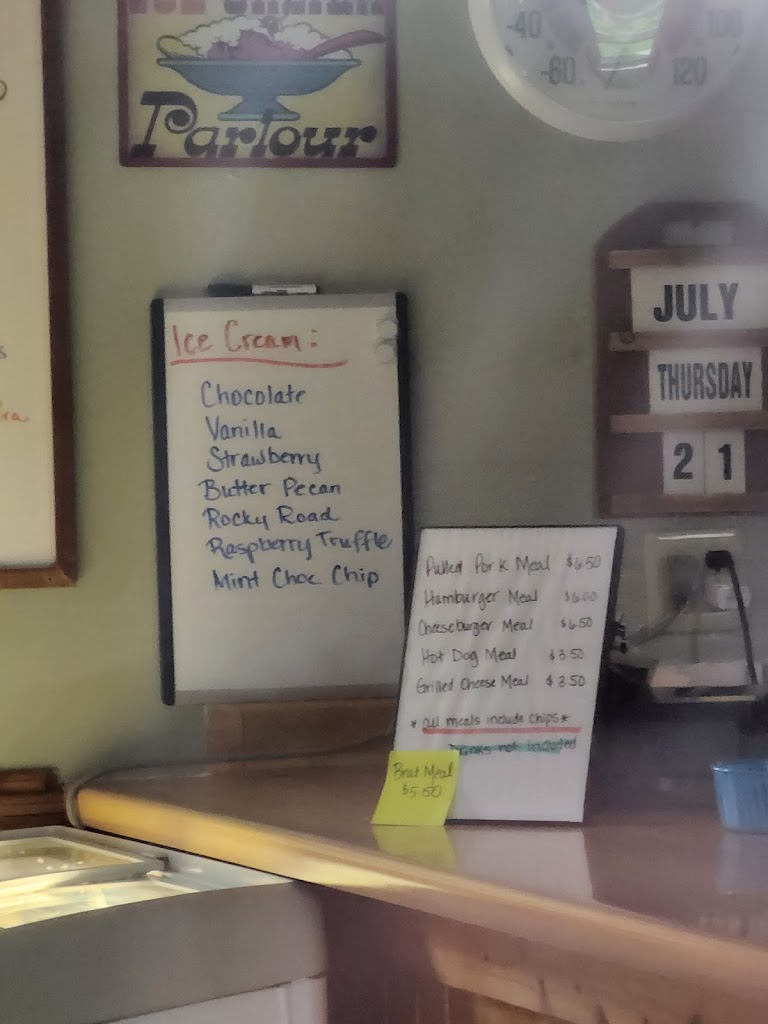 Parlour
-40
100
-60
120
JULY
THURSDAY
2 1
Ice Cream:
Chocolate
Vanilla
Strawberry
Butter Pecan
Rocky Road
Raspberry Truffle
Mint Choc Chip
Pulled Pork Meal $6.50
Hamburger Meal $6.00
Cheeseburger Meal $6.50
Hot Dog Meal $3.50
Grilled Cheese Meal $3.50
* all meals include chips *
Drinks not included
Brat Meal
$5.50